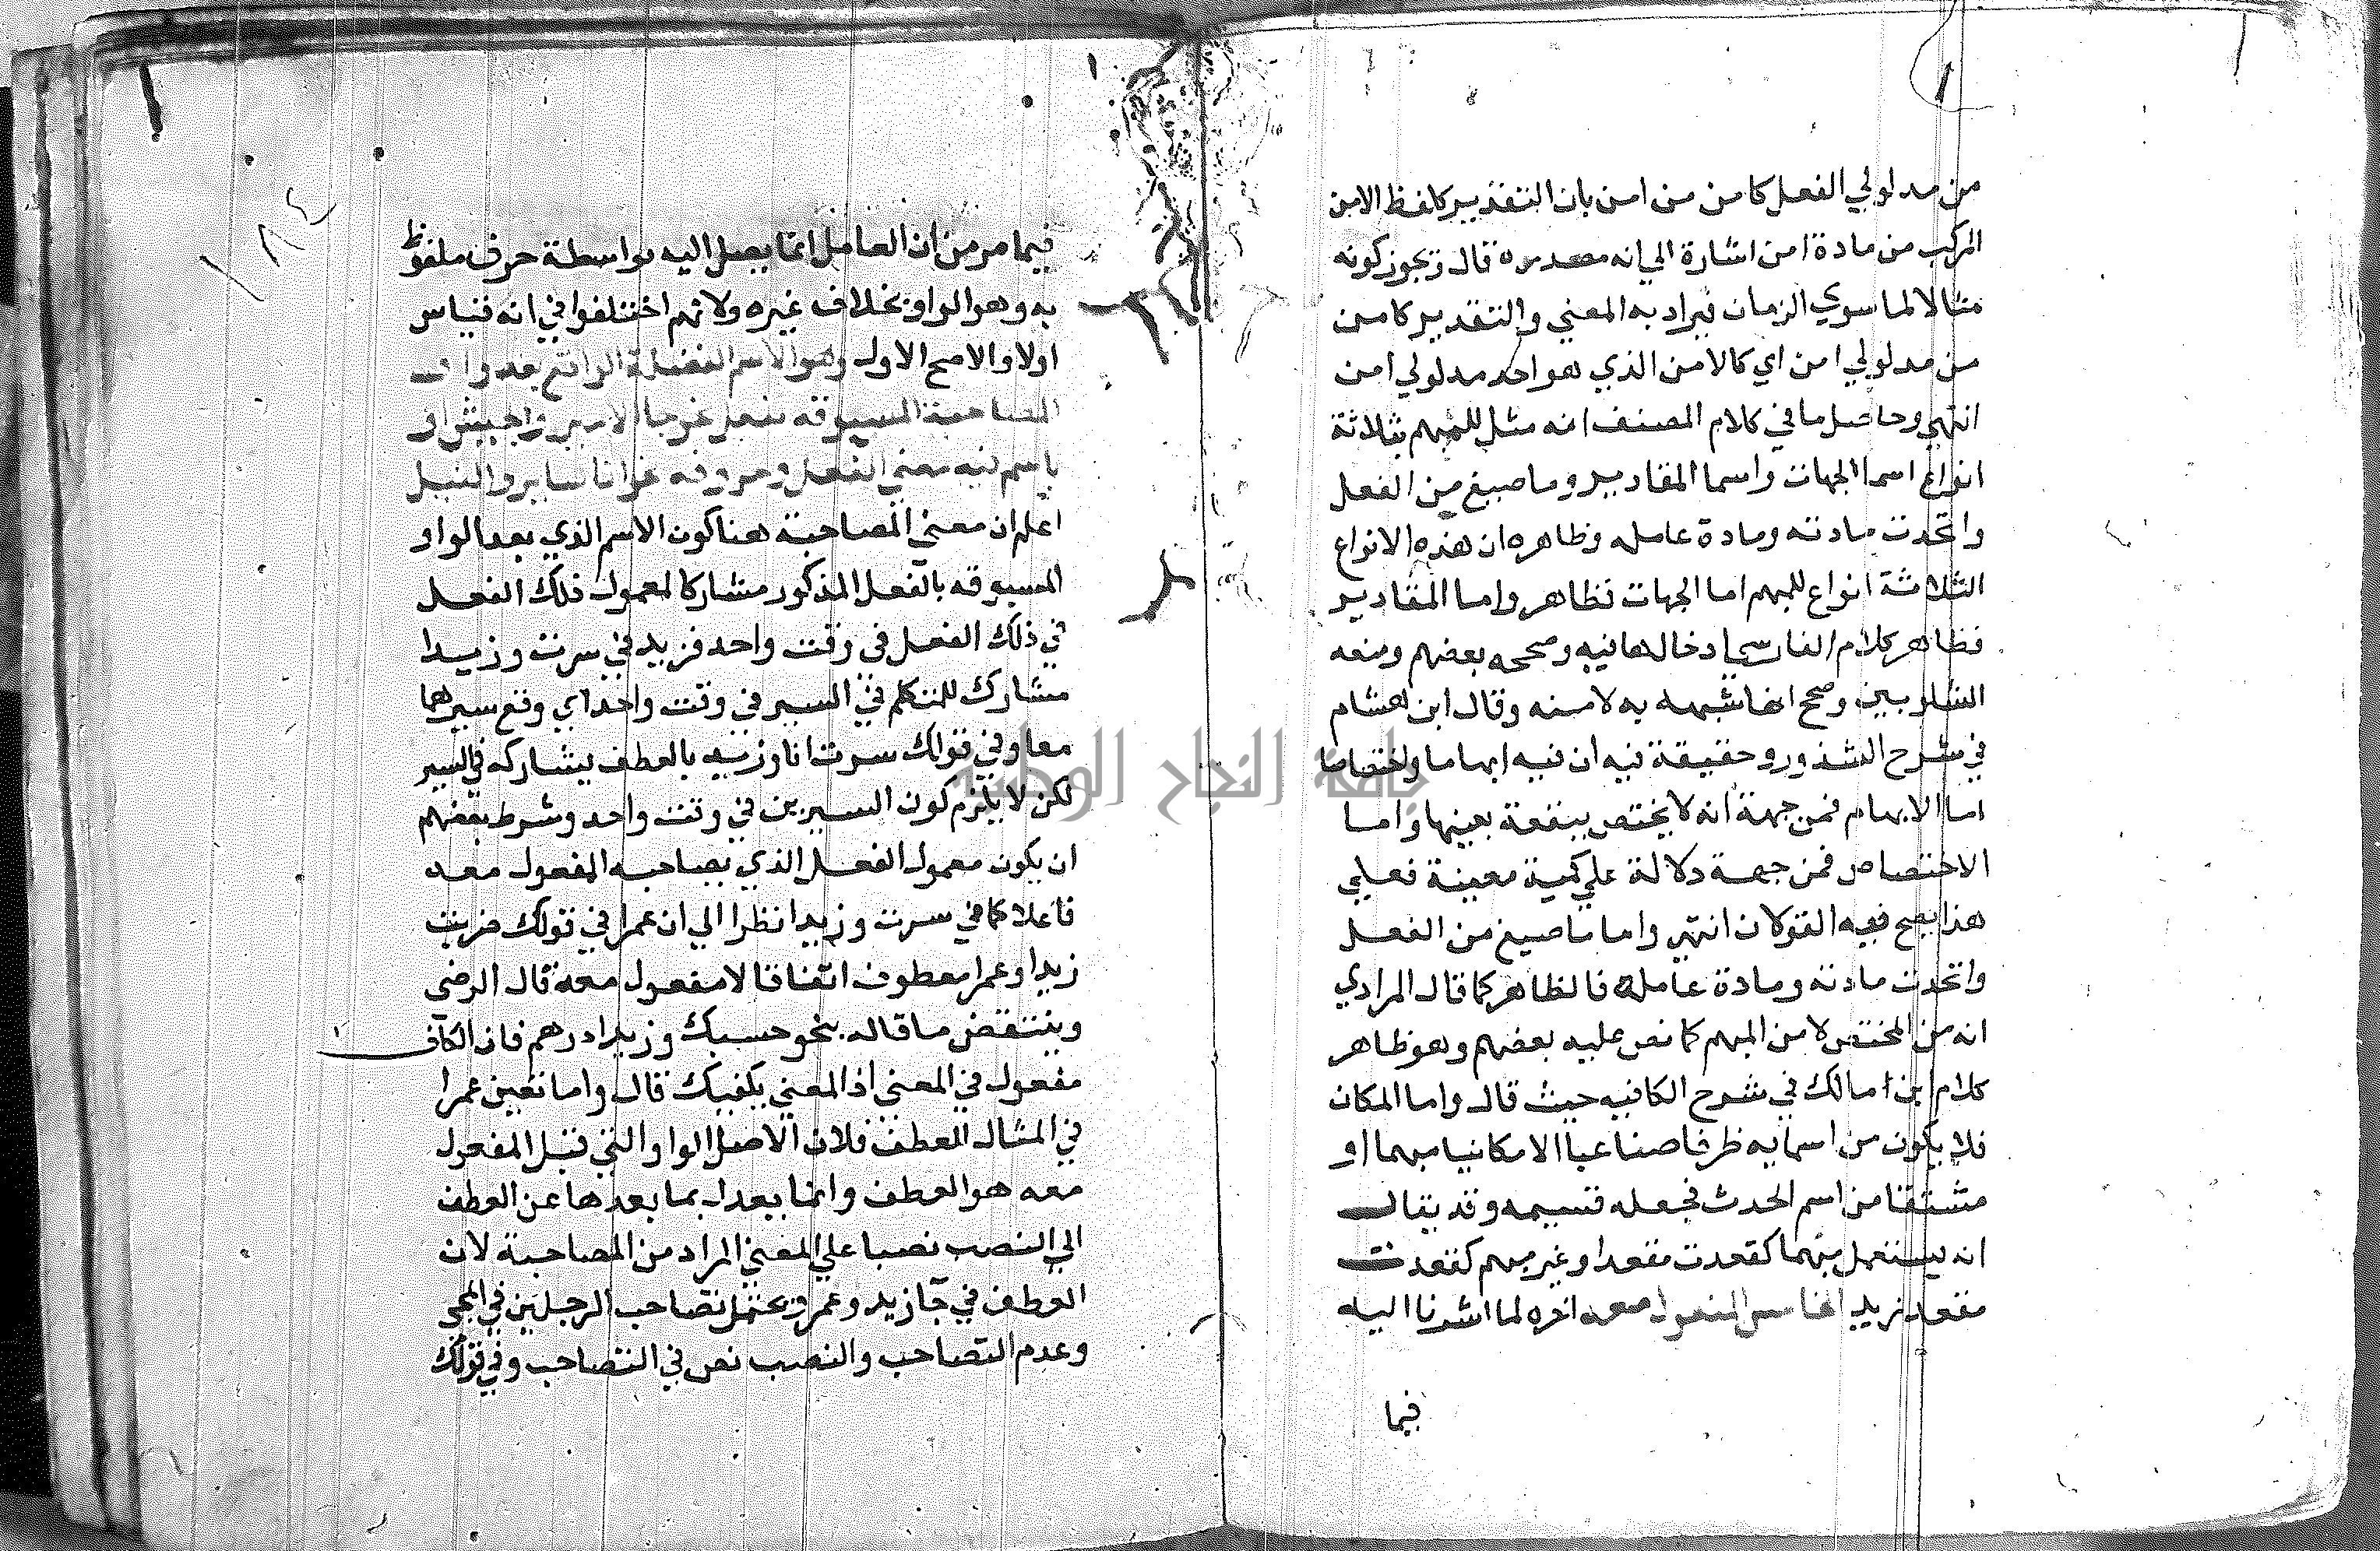 من مدلولي الفعل كامن من امن بان التقدير كلفظ الامن
المركب من مادة امن اشارة الي انه مصدره قال ويجوز كونه
مثالا لما سوي الزمان فيراد به المعني والتقدير كامن
من مدلولي امن اي كالامن الذي هو احد مدلولي امن
انتهي وحاصل ما في كلام المصنف انه مثل للمبهم بثلاثة
انواع اسما الجهات واسما المقادير وما صيغ من الفعل
واتحدت مادته ومادة عامله وظاهره ان هذه الانواع
الثلاثة انواع للمبهم اما الجهات فظاهر واما المقادير
فظاهر كلام الفارسي ادخالها فيه وصححه بعضهم ومنعه
الشلوبين وصحح انها شبيهه به لا منه وقال ابن هشام
في شرح الشذور وحقيقة فيه ان فيه ابهاما واختصاصا
اما الابهام فمن جهة انه لا يختص ببقعة بعينها واما
الاختصاص فمن جهة دلالة علي كمية معينة فعلي
هذا يصح فيه القولان انتهي واما ما صيغ من الفعل
واتحدت مادته ومادة عامله فالظاهر كما قال المرادي
انه من المختص لا من المبهم كما نص عليه بعضهم وهو ظاهر
كلام ابن مالك في شرح الكافيه حيث قال واما المكان
فلا يكون من اسمايه ظرفا صناعيا الا مكانيا مبهما او
مشتقا من اسم الحدث فجعله قسيمه وقد يقال
انه يستعمل مبهما كقعدت مقعدا وغير مبهم كقعدت
مقعد زيد المفعول معه اخره لما اشرنا اليه
فيما
١٨٤
فيما مر من ان العامل انما يصل اليه بواسطة حرف ملفوظ
به وهو الواو بخلاف غيره ولانهم اختلفوا في انه قياس
اولا والاصح الاول وهو الاسم الفضلة الواقع بعد واو
المصاحبة المسبوقه بفعل نحو جا الامير والجيش او
باسم فيه معني الفعل وحروفه نحو انا ساير والنيل
اعلم ان معني المصاحبة هنا كون الاسم الذي بعد الواو
المسبوقه بالفعل المذكور مشاركا لمعمول ذلك الفعل
في ذلك الفعل في وقت واحد فزيد في سرت وزيدا
مشارك للمتكلم في السير في وقت واحد اي وقع سيرهما
معا وفي قولك سرت انا وزيد بالعطف يشاركه في السير
لكن لا يلزم كون السيرين في وقت واحد وشرط بعضهم
ان يكون معمول الفعل الذي يصاحبه المفعول معه
فاعلا كما في سرت وزيدا نظرا الي ان عمرا في قولك ضربت
زيدا وعمرا معطوف اتفاقا لا مفعول معه قال الرضي
وينتقض ما قاله بنحو حسبك وزيدا درهم فان الكاف
مفعول في المعني اذ المعني يكفيك قال واما تعين عمرا
في المثال للعطف فلان الاصل الواو التي قبل المفعول
معه هو العطف وانما يعدل بما بعدها عن العطف
الي النصب نصا علي المعني المراد من المصاحبة لان
العطف في جا زيد وعمرو يحتمل تصاحب الرجلين في المجي
وعدم التصاحب والنصب نص في التصاحب وفي قولك
جامعة النجاح الوطنية